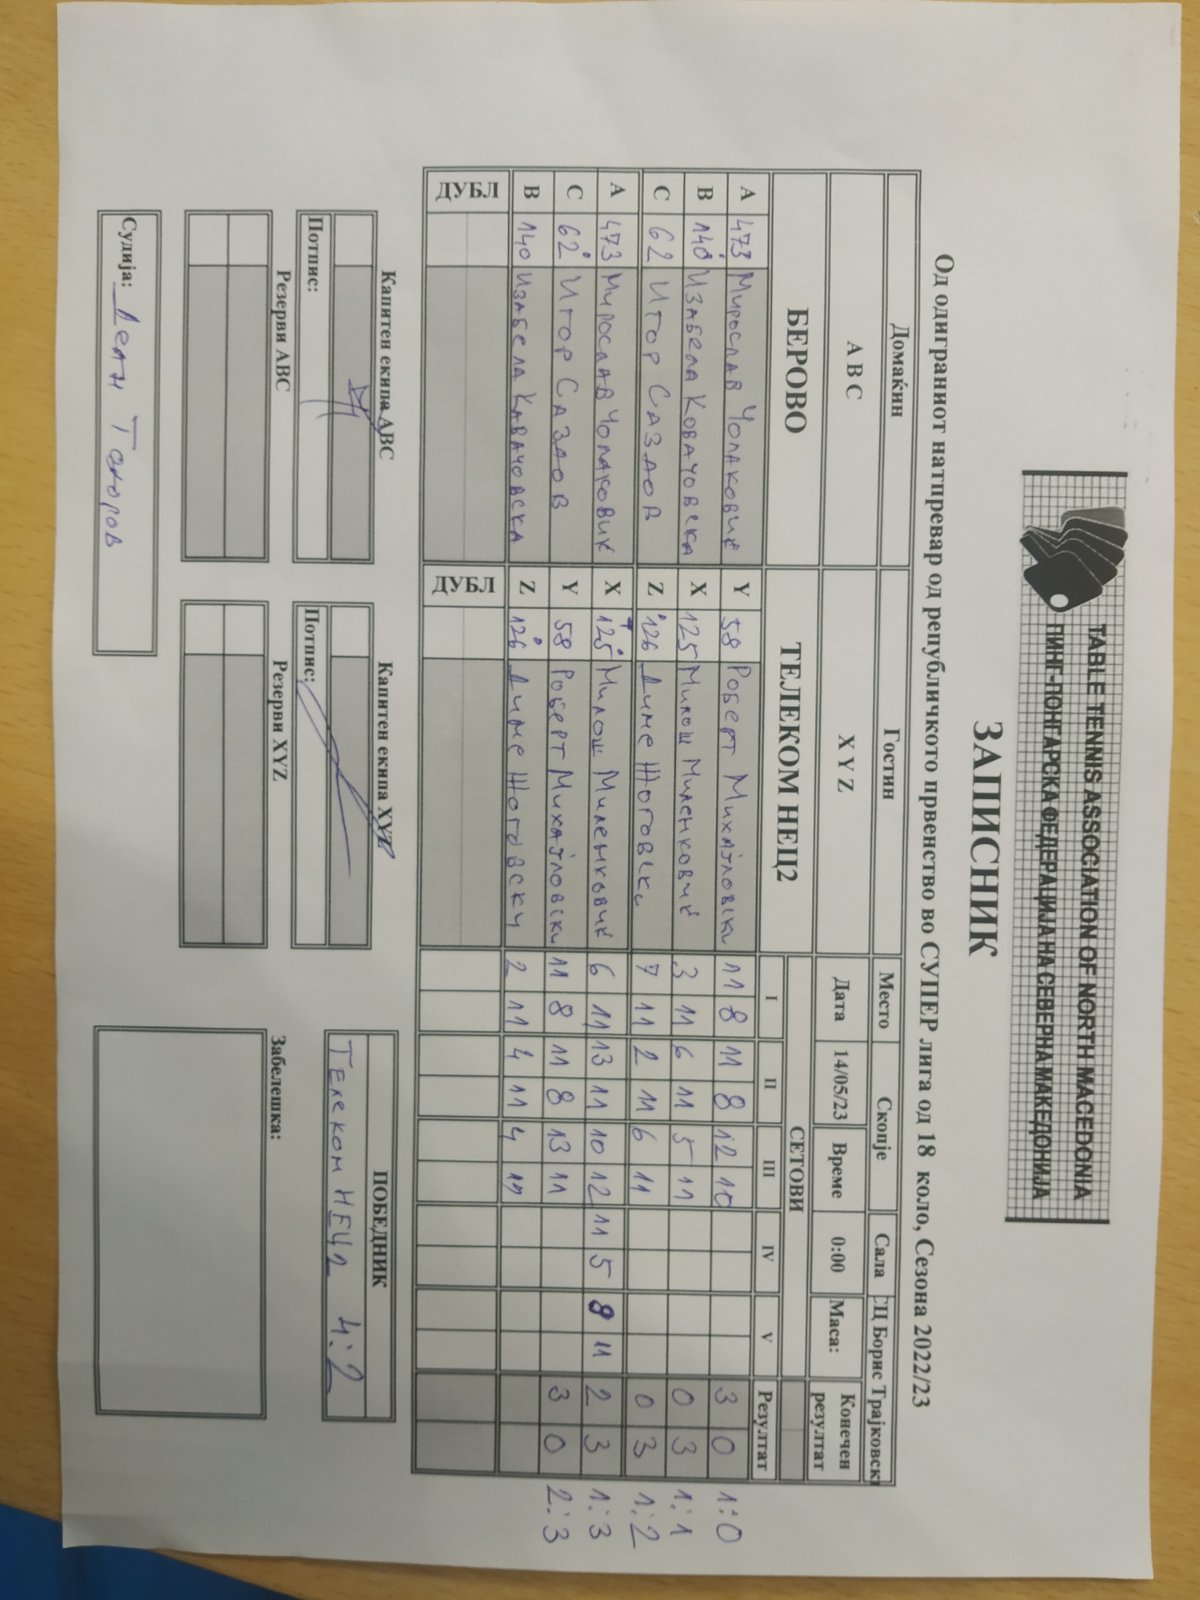 TABLE TENNIS ASSOCIATION OF NORTH MACEDONIA
ПИНГ-ПОНГАРСКА ФЕДЕРАЦИЈА НА СЕВЕРНА МАКЕДОНИЈА
ЗАПИСНИК
Од одиграниот натпревар од републичкото првенство во СУПЕР лига од 18 коло, Сезона 2022/23
Домаќин Гостин Место Скопје Сала СЦ Борис Трајковски
A B C X Y Z Дата 14/05/23 Време 0:00 Маса: Конечен резултат
БЕРОВО ТЕЛЕКОМ НЕЦ2 СЕТОВИ
I II III IV V Резултат
A 473 Мирослав Чолаковиќ Y 58 Роберт Михајловски 11 8 11 8 12 10 3 0 1:0
B 140 Изабела Ковачовска X 125 Милош Миленковиќ 3 11 6 11 5 11 0 3 1:1
C 62 Игор Саздов Z 126 Диме Жоговски 7 11 2 11 6 11 0 3 1:2
A 473 Мирослав Чолаковиќ X 125 Милош Миленковиќ 6 11 13 11 10 12 11 5 8 11 2 3 1:3
C 62 Игор Саздов Y 58 Роберт Михајловски 11 8 11 8 13 11 3 0 2:3
B 140 Изабела Кавачовска Z 126 Диме Жоговски 2 11 4 11 4 11
ДУБЛ ДУБЛ
Капитен екипа ABC Капитен екипа XYZ ПОБЕДНИК
Потпис: Потпис: Телеком НЕЦ2 4:2
Резерви ABC Резерви XYZ Забелешка:
Судија: Деан Тоноров